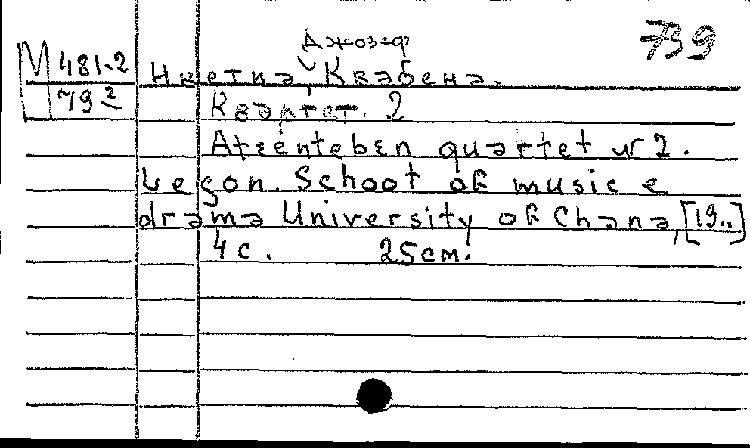 Джозеф
739
М 481-2
79 2
Нкетиа, Квабена.
Квартет. 2
Atɛɛnteben quartet № 2.
Legon. School of music e
drama University of Ghana, [19..]
4 с. 25 см.